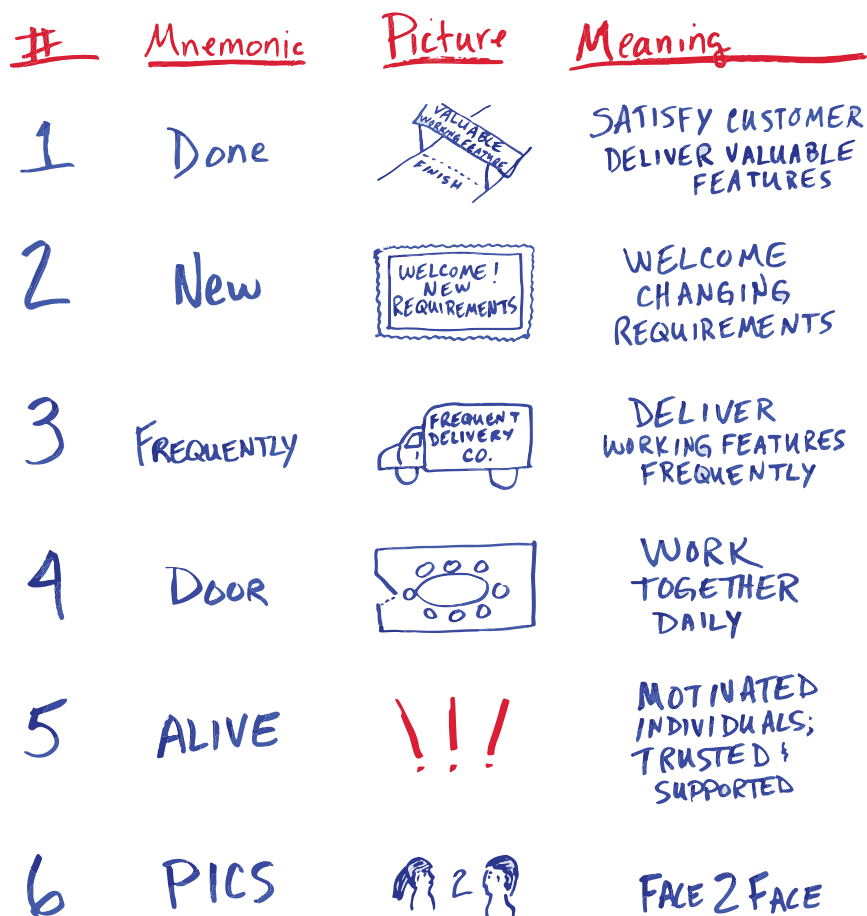 # Mnemonic Picture Meaning
1 Done
VALUABLE
WORKING FEATURE
FINISH
SATISFY CUSTOMER
DELIVER VALUABLE
FEATURES
2 New
WELCOME!
NEW
REQUIREMENTS
WELCOME
CHANGING
REQUIREMENTS
3 FREQUENTLY
FREQUENT
DELIVERY
CO.
DELIVER
WORKING FEATURES
FREQUENTLY
4 DOOR
WORK
TOGETHER
DAILY
5 ALIVE
!!!
MOTIVATED
INDIVIDUALS;
TRUSTED &
SUPPORTED
6 PICS
2
FACE 2 FACE